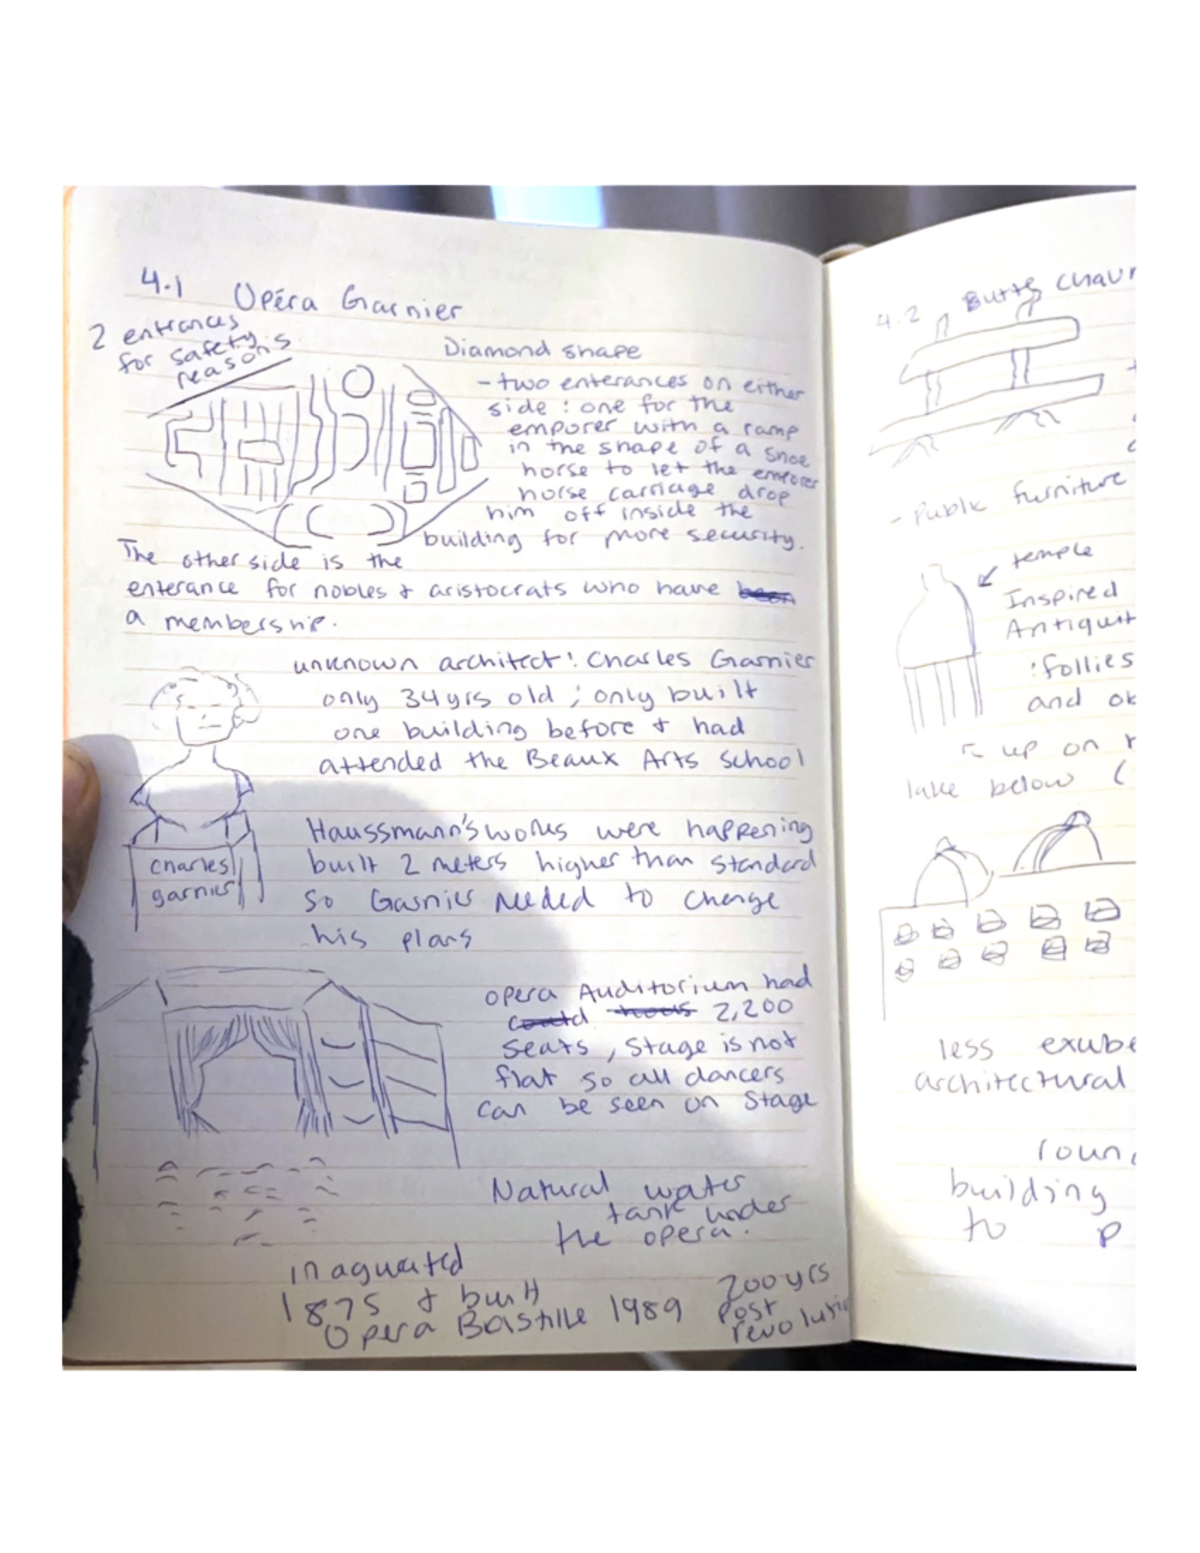 4.1 Opéra Garnier
2 entrances
for safety
reasons
Diamond shape
- two enterances on either
side : one for the
emporer with a ramp
in the shape of a shoe
horse to let the emporer
horse carriage drop
him off inside the
building for more security.
The other side is the
enterance for nobles & aristocrats who have been
a membership.
unknown architect: Charles Garnier
only 34 yrs old ; only built
one building before & had
attended the Beaux Arts School
charles
garnier
Haussmann's works were happening
built 2 meters higher than standard
so Garnier needed to change
his plans
opera Auditorium had
could 2,200
seats, stage is not
flat so all dancers
can be seen on stage
Natural water
tank under
the opera.
inaguated
1875 & built
Opera Bastille 1989
200 yrs
post
revolutio
4.2 Butte Chaur
- Public furniture
temple
Inspired
Antiquit
: follies
and
up on
lake below (
less exube
architectural
roun
building
to p